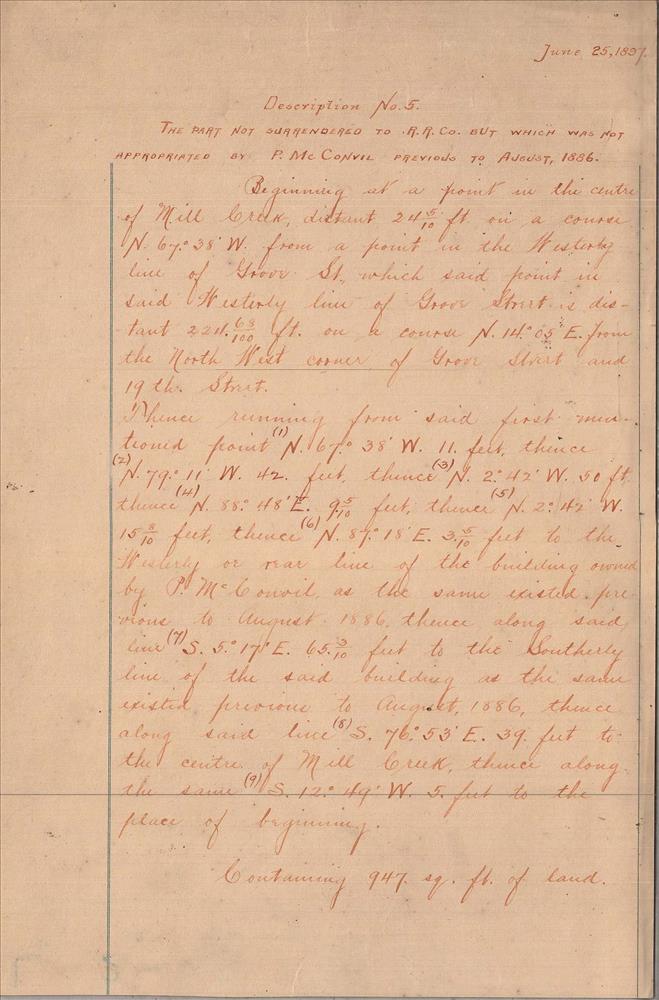 June 25, 1897.
Description No. 5.
THE PART NOT SURRENDERED TO R.R. CO. BUT WHICH WAS NOT
APPROPRIATED BY P. MC CONVIL PREVIOUS TO AUGUST, 1886.
Beginning at a point in the centre
of Mill Creek, distant 24 5/10 ft on a course
N. 67.° 38' W. from a point in the Westerly
line of Grove St, which said point in
said Westerly line of Grove Street is dis-
tant 224. 63/100 ft. on a course N. 14.° 05' E. from
the North West corner of Grove Street and
19 th. Street.
Thence running from said first men-
tioned point (1) N. 67.° 38' W. 11. feet, thence
(2) N. 79.° 11' W. 42. feet, thence (3) N. 2.° 42' W. 50 ft.
thence (4) N. 88.° 48' E. 9 5/10 feet, thence (5) N. 2.° 42' W.
15 8/10 feet, thence (6) N. 87.° 18' E. 3. 5/10 feet to the
Westerly or rear line of the building owned
by P. McConvil, as the same existed pre-
vious to August 1886, thence along said
line (7) S. 5.° 17' E. 65. 3/10 feet to the Southerly
line of the said building as the same
existed previous to August, 1886, thence
along said line (8) S. 76.° 53' E. 39. feet to
the centre of Mill Creek, thence along
the same (9) S. 12.° 49' W. 5. feet to the
place of beginning.
Containing 947. sq. ft. of land.